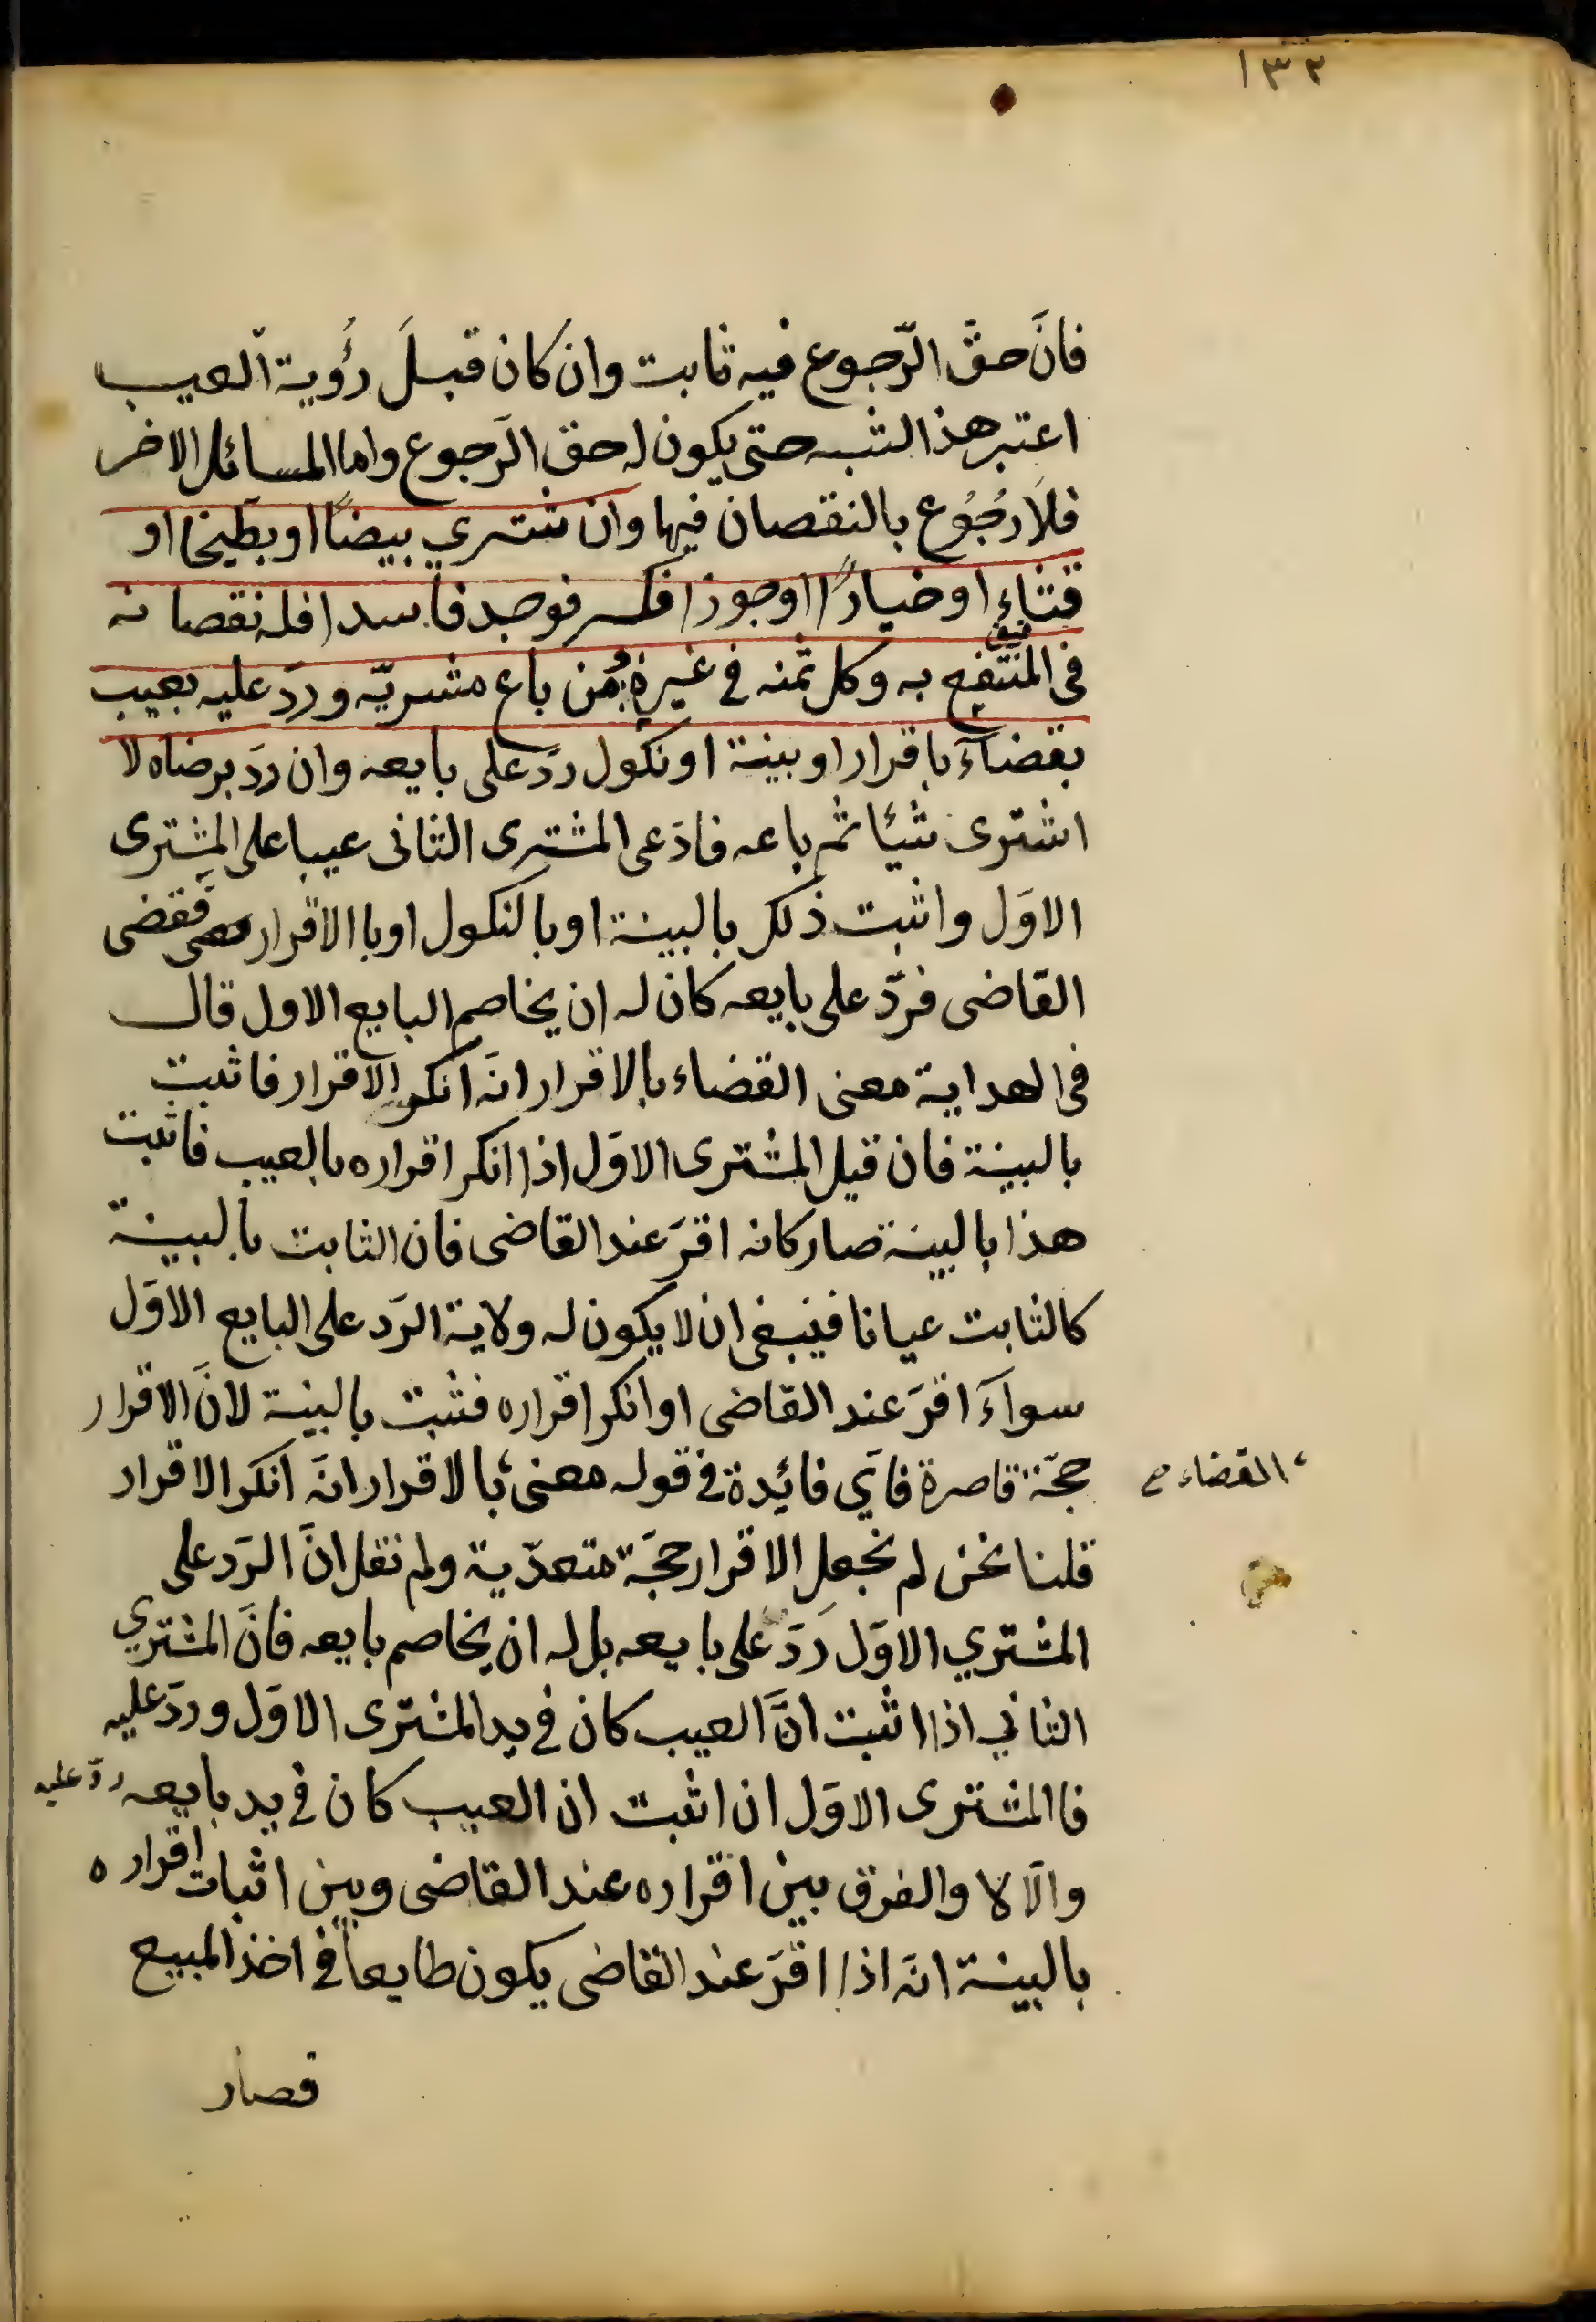 ١٣٢
فانَّ حقَّ الرّجوع فيه ثابت وان كان قبلَ رُؤية العيب
اعتبر هذا الشبه حتى يكون له حق الرَجوع واما المسائل الاخر
فلَا رجُوُع بالنقصان فيها وان شترى بيضًا او بطيخا او
قثاءِ او خيارًا او جوزا فكسر فوجد فاسدا فله نقصانه
فى المنتفع به وكل ثمنه فى غيره ومن باع مشريّه وردّ عليه بعيب
بقضآءَ باقرار او بينة او نكول ردَّ على بايعه وان ردَّ برضاه لا
اشترى شيئا ثم باعه فادَعى المشترى الثانى عيبا على المشترى
الاوَل واثبت ذلك بالبينة او بالنكول او با الاقرار فقضى
القاضى فردّ على بايعه كان له ان يخاصم البايع الاول قال
فى الهداية معنى القضاء بالاقرار انه انكر الاقرار فاثبت
بالبينة فان قيل المشترى الاوَل اذا انكر اقراره بالعيب فاثبت
هذا بالبينة صار كانه اقرَ عند القاضى فان الثابت بالبينة
كالثابت عيانا فينبغى ان لا يكون له ولاية الرَد على البايع الاوَل
سوآءَ اقرَ عند القاضى او انكر اقراره فثبت بالبينة لانَّ الاقرار
حجّة قاصرة فاَي فائدة فى قوله معنى بالاقرار انَه انكر الاقرار
القضاء صح
قلنا نحن لم نجعل الاقرار حجَة متعدّية ولم نقل انَّ الرَد على
المشتري الاوَل رَدَّ على بايعه بل له ان يخاصم بايعه فانَّ المشتري
الثاني اذا اثبت انَّ العيب كان فى يد المشترى الاوَل وردَ عليه
فا المشترى الاوَل ان اثبت ان العيب كان فى يد بايعه ردّ عليه
والَا لا والفرق بين اقراره عند القاضى وبين اثبات اقراره
بالبينة انَه اذا اقرَ عند القاضى يكون طايعاً فى اخذ المبيع
فصار